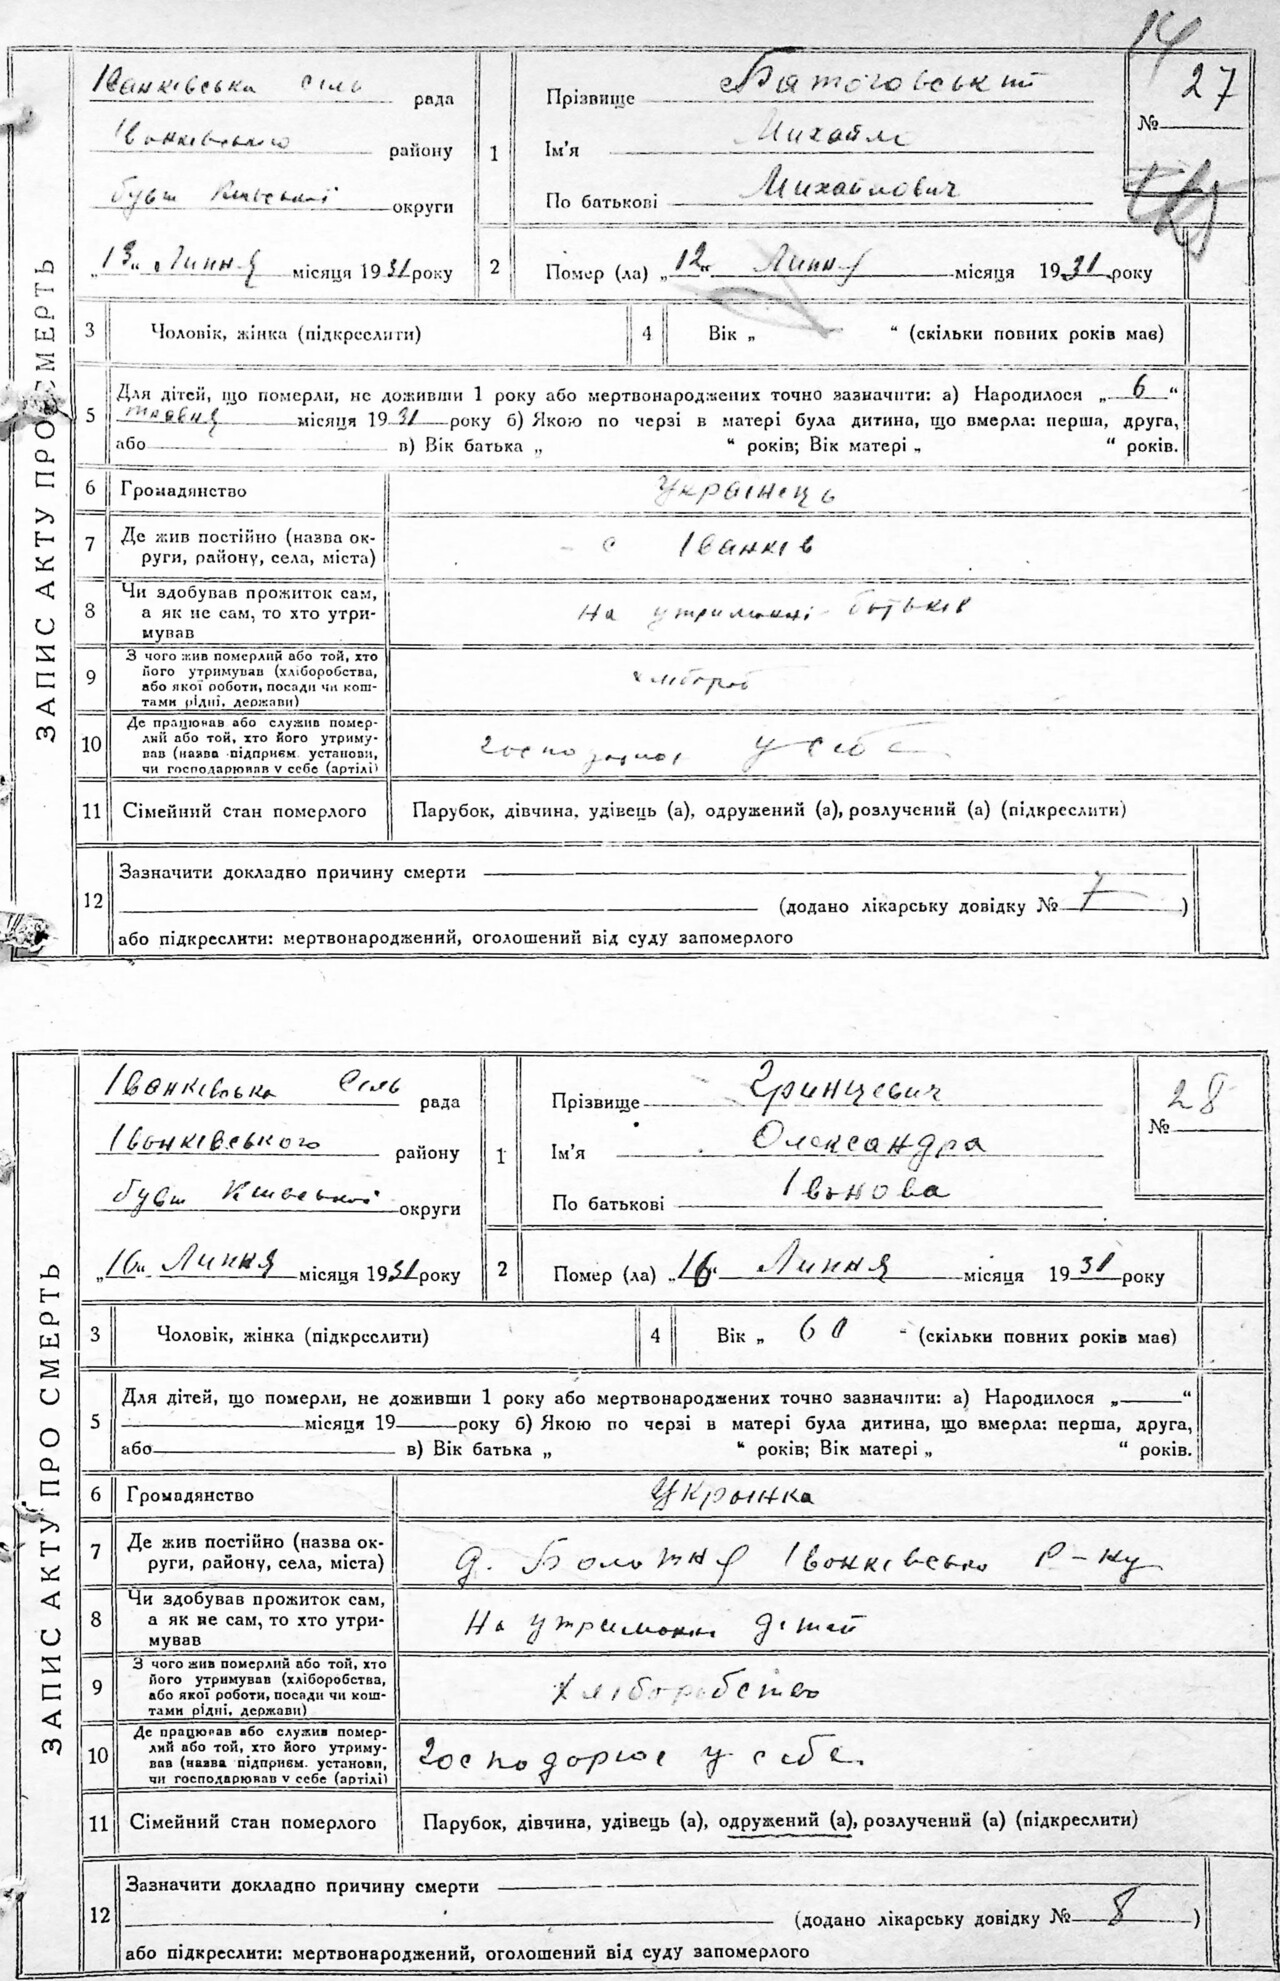 14
ЗАПИС АКТУ ПРО СМЕРТЬ
Іванківська сіль рада
Іванківського району
бувш Київської округи
„13“ Липня місяця 1931 року
1
Прізвище Батоговський
Ім'я Михайло
По батькові Михайлович
27
№
2
Помер (ла) „12“ Липня місяця 1931 року
3
Чоловік, жінка (підкреслити)
4
Вік „ “ (скільки повних років мав)
5
Для дітей, що померли, не доживши 1 року або мертвонароджених точно зазначити: а) Народилося „6“
травня місяця 1931 року б) Якою по черзі в матері була дитина, що вмерла: перша, друга,
або в) Вік батька „ “ років; Вік матері „ “ років.
6
Громадянство
Українець
7
Де жив постійно (назва ок-
руги, району, села, міста)
с Іванків
8
Чи здобував прожиток сам,
а як не сам, то хто утри-
мував
На утриманні батьків
9
З чого жив померлий або той, хто
його утримував (хліборобства,
або якої роботи, посади чи кош-
тами рідні, держави)
хлібороб
10
Де працював або служив помер-
лий або той, хто його утриму-
вав (назва підприєм. установи,
чи господарював у себе (артілі)
господарює у себе
11
Сімейний стан померлого
Парубок, дівчина, удівець (а), одружений (а), розлучений (а) (підкреслити)
12
Зазначити докладно причину смерти
(додано лікарську довідку № 7)
або підкреслити: мертвонароджений, оголошений від суду запомерлого
ЗАПИС АКТУ ПРО СМЕРТЬ
Іванківська сіль рада
Іванківського району
бувш Київської округи
„16“ Липня місяця 1931 року
1
Прізвище Гринцевич
Ім'я Олександра
По батькові Іванова
28
№
2
Помер (ла) „16“ Липня місяця 1931 року
3
Чоловік, жінка (підкреслити)
4
Вік „ 60 “ (скільки повних років мав)
5
Для дітей, що померли, не доживши 1 року або мертвонароджених точно зазначити: а) Народилося „ “
місяця 19 року б) Якою по черзі в матері була дитина, що вмерла: перша, друга,
або в) Вік батька „ “ років; Вік матері „ “ років.
6
Громадянство
Українка
7
Де жив постійно (назва ок-
руги, району, села, міста)
д. Болотня Іванківсько р-ну
8
Чи здобував прожиток сам,
а як не сам, то хто утри-
мував
На утриманні дітей
9
З чого жив померлий або той, хто
його утримував (хліборобства,
або якої роботи, посади чи кош-
тами рідні, держави)
Хліборобство
10
Де працював або служив помер-
лий або той, хто його утриму-
вав (назва підприєм. установи,
чи господарював у себе (артілі)
Господарює у себе
11
Сімейний стан померлого
Парубок, дівчина, удівець (а), одружений (а), розлучений (а) (підкреслити)
12
Зазначити докладно причину смерти
(додано лікарську довідку № 8)
або підкреслити: мертвонароджений, оголошений від суду запомерлого